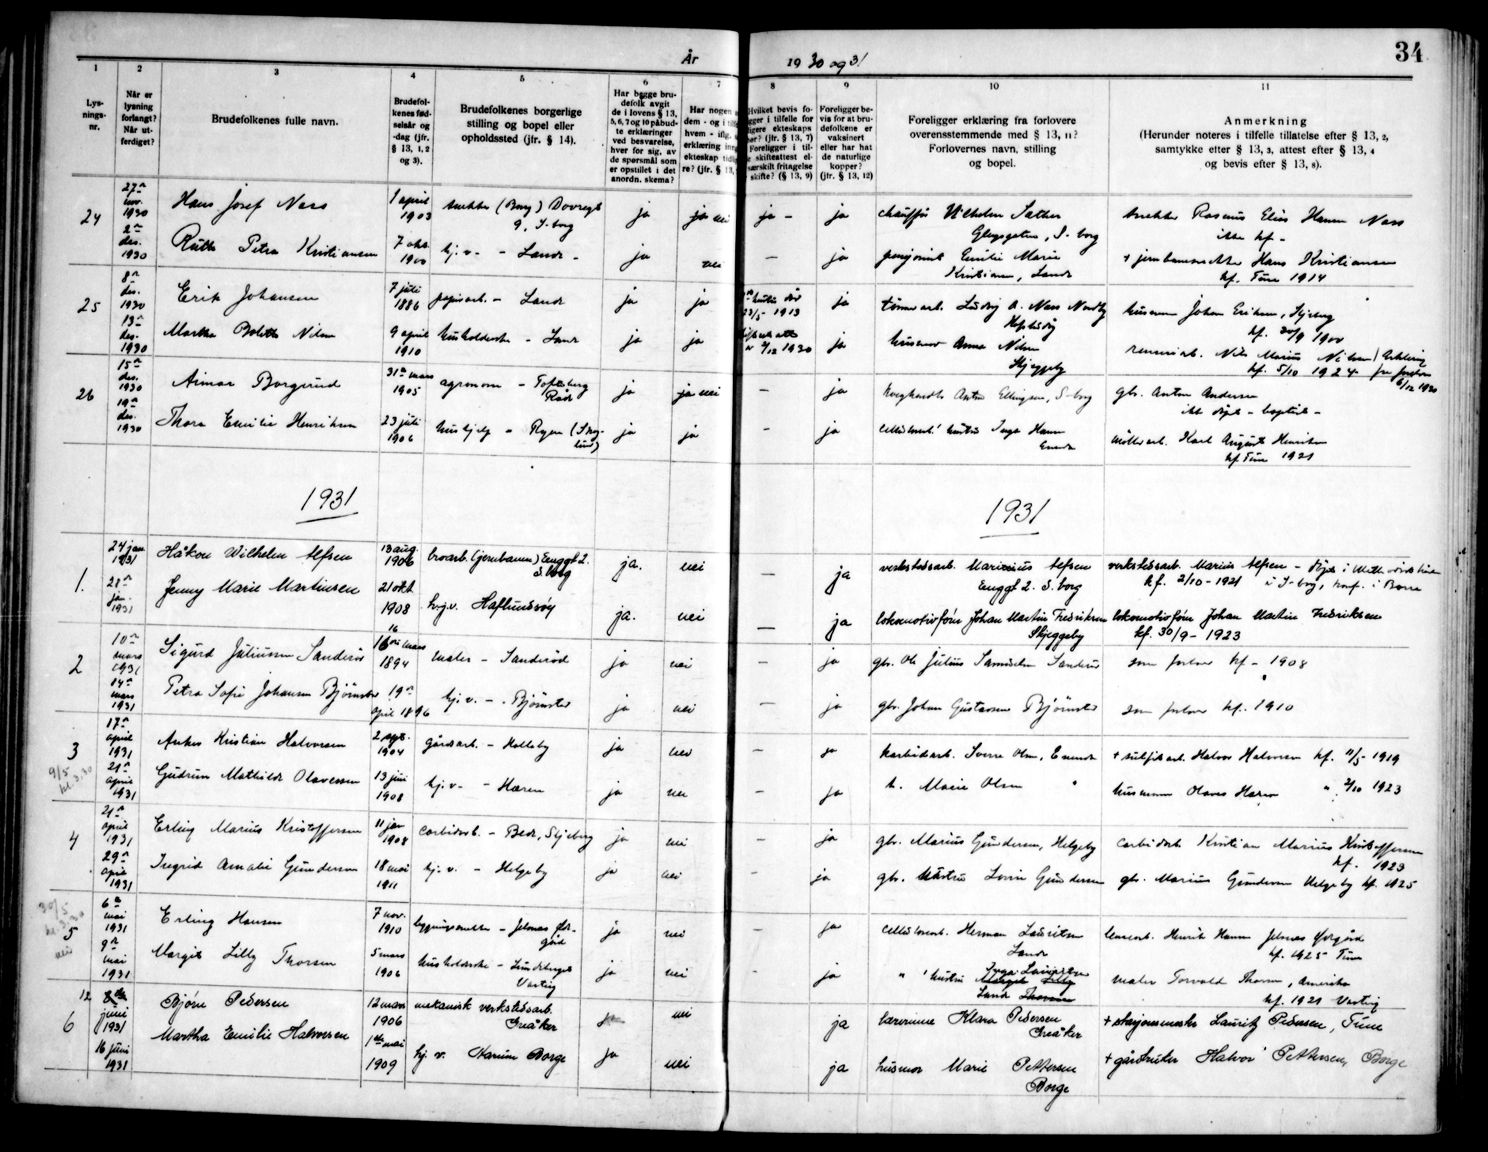 34
År 1930 og 31
1
2
3
4
5
6
7
8
9
10
11
Lys-
nings-
nr.
Når er
lysning
forlangt?
Når ut-
ferdiget?
Brudefolkenes fulle navn.
Brudefol-
kenes fød-
selsår og
-dag (jfr.
§ 13, 1, 2
og 3).
Brudefolkenes borgerlige
stilling og bopel eller
opholdssted (jfr. § 14).
Har begge bru-
defolk avgit
de i lovens § 13,
5, 6, 7 og 10 påbud-
te erklæringer
ved besvarelse,
hver for sig, av
de spørsmål som
er opstillet i det
anordn. skema?
Har nogen
dem - og i
hvem - iflg.
erklæring
ekteskap
re? (jfr. § 13,
Hvilket bevis fo-
ligger i tilfelle for
ekteskaps
(§ 13, 7)
Foreligger i til-
skifteattest
fritagelse
skifte? (§ 13, 9)
Foreligger be-
vis for at bru-
defolkene er
vaksinert
eller har hat
de naturlige
kopper?
(jfr. § 13, 12)
Foreligger erklæring fra forlovere
overensstemmende med § 13, 11?
Forlovernes navn, stilling
og bopel.
Anmerkning
(Herunder noteres i tilfelle tillatelse efter § 13, 2,
samtykke efter § 13, 3, attest efter § 13, 4
og bevis efter § 13, 8).
24
27de nov. 1930
Hans Josef Næss
1 april 1903
snekker (Borg) Dovregt
9, S-borg
ja
ja nei
ja -
ja
chauffør Vilhelm Sæther
S-borg
snekker Rasmus Elius Hansen Næss
ikke kf -
2den des. 1930
Ruth Petra Kristiansen
7 okt 1900
hj.v. - Lande -
ja
nei
-
ja
pensjonist Emilie Marie
Kristiansen, Lande
+ jernbanesnekker Hans Kristiansen
kf. Tune 1914
25
8de des. 1930
Erik Johansen
7 juli 1886
papirarb. - Lande
ja
ja
hustru død
23/5 1913
ja
tømmerarb. Ludvig A. Næss Nordby
husmann Johan Eriksen, Skjeberg
kf. 30/9 1900
13de des. 1930
Martha Bolette Nilsen
9 april 1910
husholderske - Lande
ja
ja
1930
ja
husmor Anna Nilsen
Skjeggeby
Nils Marius Nilsen
kf. 5/10 1924
6/12 1930
26
15de des. 1930
Aimar Borgerud
31te mars 1905
agronom - Tofteberg
Råde
ja
ja nei
-
ja
Anton Ellingsen, S-borg
gbr. Anton Andersen
ikke døpt - baptist -
19de des. 1930
Thora Emilie Henriksen
23 juli 1906
hushjelp - Ryen
ja
ja
-
ja
cellulosearb. hustru Inga Hansen
møllearb. Karl August Henriksen
kf. Tune 1921
1931
1931
1.
24 jan 1931
Håkon Wilhelm Alfsen
13 aug. 1906
broarb. (jernbanen) Enggt 2.
S.borg
ja.
nei
-
ja
verkstedsarb. Marinius Alfsen
Enggt 2. S.borg
verkstedsarb. Marius Alfsen - døpt i Methodistkirken
kf. 2/10 - 1921 i S-borg, konf. i Borre
28de jan. 1931
Jenny Marie Martinsen
21 okt 1908
hj.v. Haflundsøy
ja.
nei
-
ja
lokomotivfører Johan Martin Fredriksen
Skjeggeby
lokomotivfører Johan Martin Fredriksen
kf. 30/9 - 1923
2
10de mars 1931
Sigurd Juliussen Sanderød
16 mars 1894
maler - Sanderød
ja
nei
-
ja
gbr. Ole Julius Samuelsen Sanderød
som forlover kf - 1908
14de mars 1931
Petra Sofie Johansen Bjørnstad
19de april 1896
hj.v. - Bjørnstad
ja
nei
-
ja
gbr. Johan Gustavsen Bjørnstad
som forlover kf. 1910
3
9/5 kl. 3.30
17de april 1931
Anker Kristian Halvorsen
2 sept. 1904
gårdsarb. - Holleby
ja
nei
-
ja
karbidarb. Sverre Olsen,
+ sulfitarb. Halvor Halvorsen kf. 1919
21de april 1931
Gudrun Mathilde Olavessen
13 juni 1908
hj.v. - Haren
ja
nei
-
ja
h. Marie Olsen "
husmann Olaves Haren " 2/10 1923
4
21de april 1931
Erling Marius Kristoffersen
11 jan 1908
carbidarb. - Skjeberg
ja
nei
-
ja
gbr. Marius Gundersen, Helgeby
carbidarb Kristian Marius Kristoffersen
kf. 1923
29de april 1931
Ingrid Amalie Gundersen
18 mai 1911
hj.v. - Helgeby
ja
nei
-
ja
gbr. hustru Lovise Gundersen
gbr. Marius Gundersen Helgeby kf. 1925
30/5 kl. 3.30
5
nei
6te mai 1931
Erling Hansen
7 nov. 1910
bygningssnekker - Jelsnes
ja
nei
-
ja
cellulosearb. Herman Lauritsen
Lande
Henrik Hansen Jelsnes
kf. 1925 Tune
9de mai 1931
Margit Lilly Thorsen
5 mars 1906
husholderske -
Varteig
ja
nei
-
ja
" hustru Inga Lauritsen
Lande
maler Torvald Thorsen, Amerika
kf. 1921 Varteig
6
12 juni 1931
Bjørn Pedersen
12 mars 1906
mekanisk verkstedsarb.
Greåker
ja
nei
ja
lærerinne Klara Pedersen
Greåker
+ stasjonsmester Lauritz Pedersen, Tune
16 juni 1931
Martha Emilie Halvorsen
1ste mai 1909
hj.v. Borge
ja
nei
ja
husmor Marie Pettersen
Borge
+ gårdbruker Halvor Pettersen, Borge